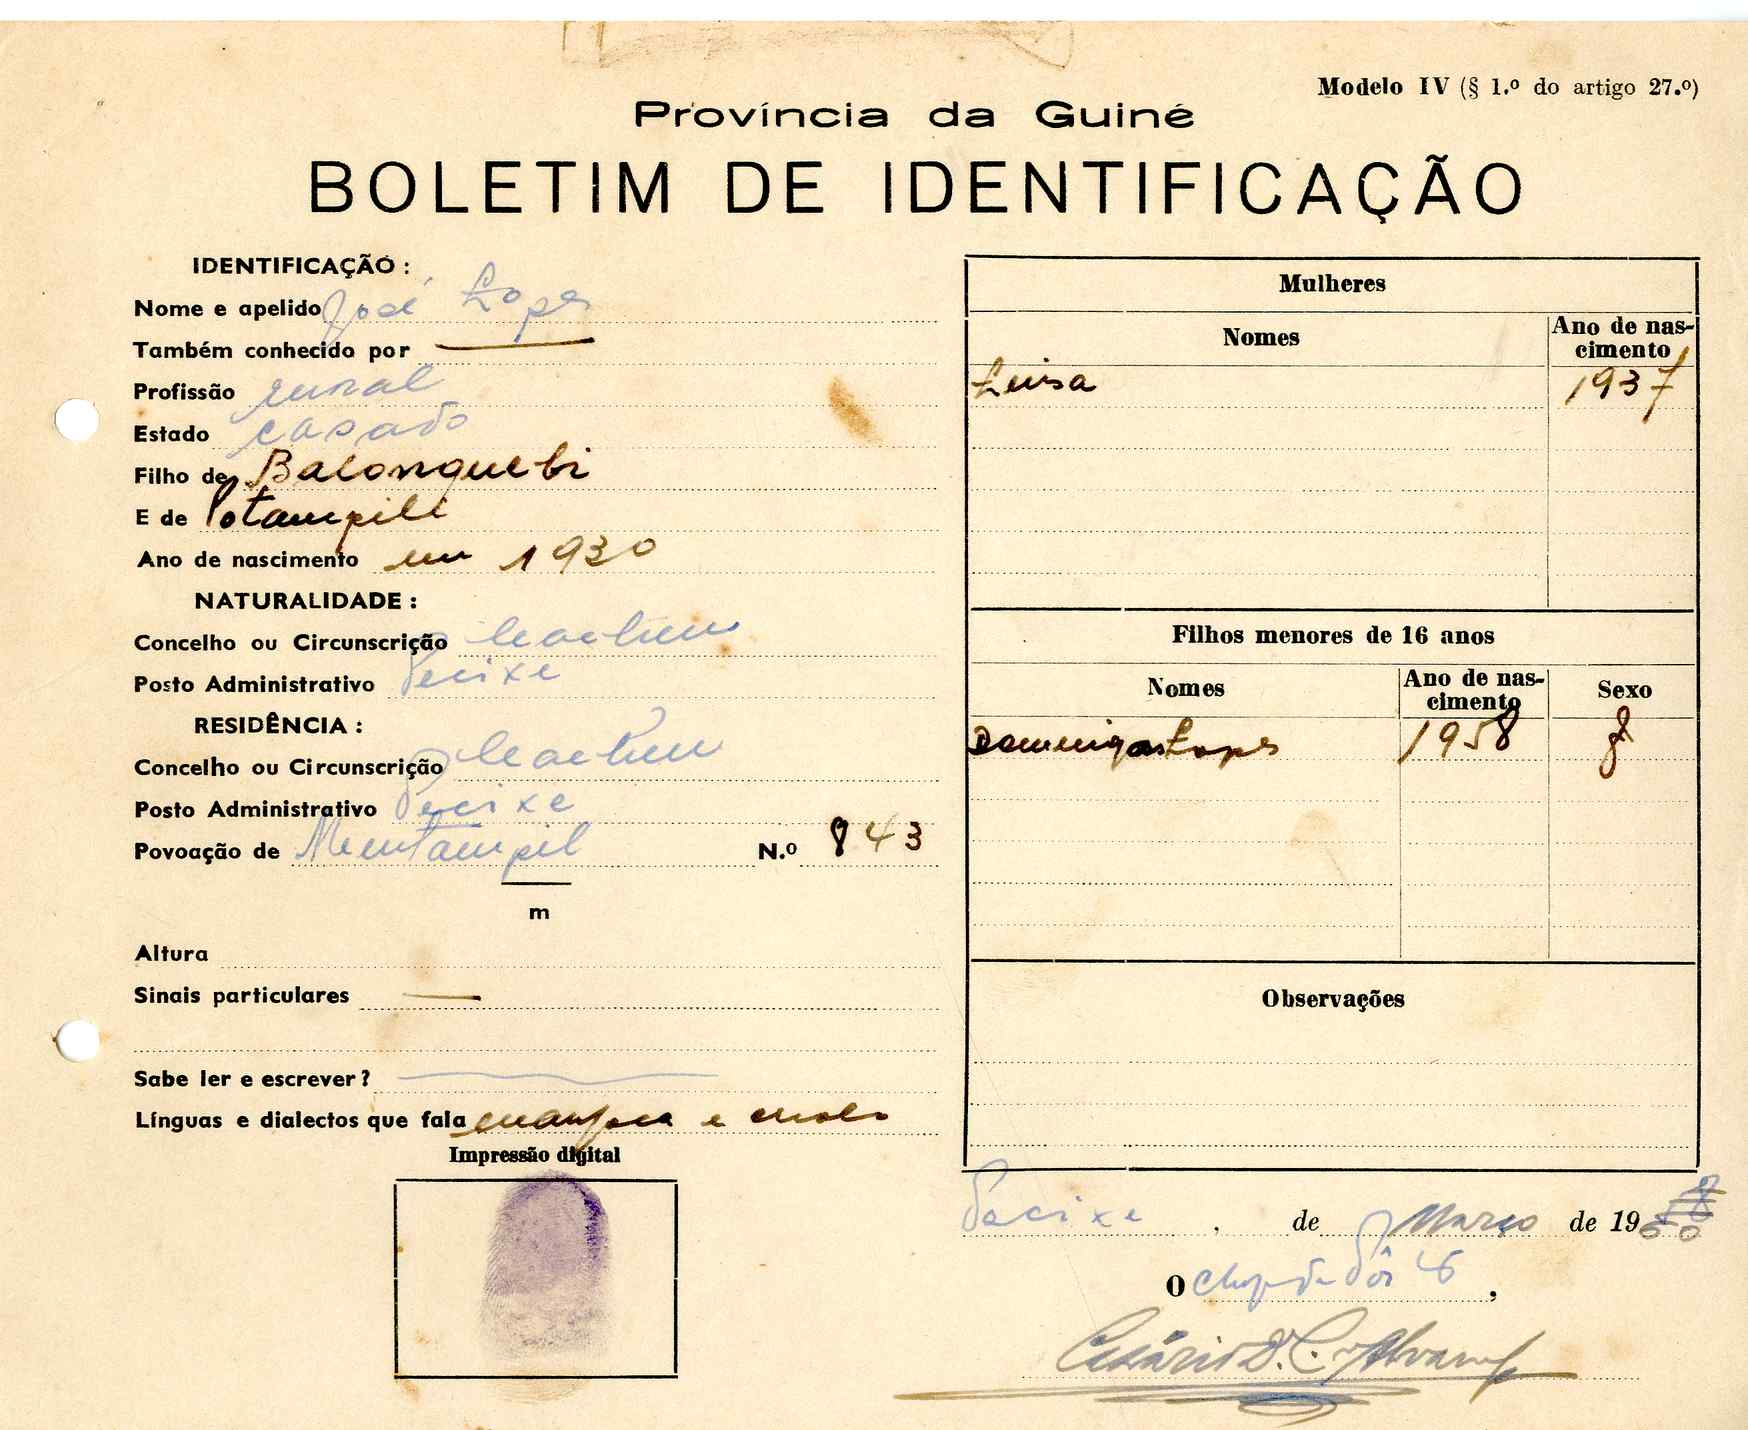 Modelo IV (§ 1.º do artigo 27.º)
Província da Guiné
BOLETIM DE IDENTIFICAÇÃO
IDENTIFICAÇÃO :
Nome e apelido José Lopes
Também conhecido por
Profissão rural
Estado casado
Filho de Balonquebi
E de Potampili
Ano de nascimento em 1930
NATURALIDADE :
Concelho ou Circunscrição
Posto Administrativo Pecixe
RESIDÊNCIA :
Concelho ou Circunscrição
Posto Administrativo Pecixe
Povoação de Mentampil N.º 843
m
Altura
Sinais particulares
Sabe ler e escrever ?
Línguas e dialectos que fala e
Impressão digital
Mulheres
Nomes Ano de nas-
cimento
Luisa 1937
Filhos menores de 16 anos
Nomes Ano de nas-
cimento Sexo
Lopes 1958
Observações
Pecixe , de Março de 19
O
,